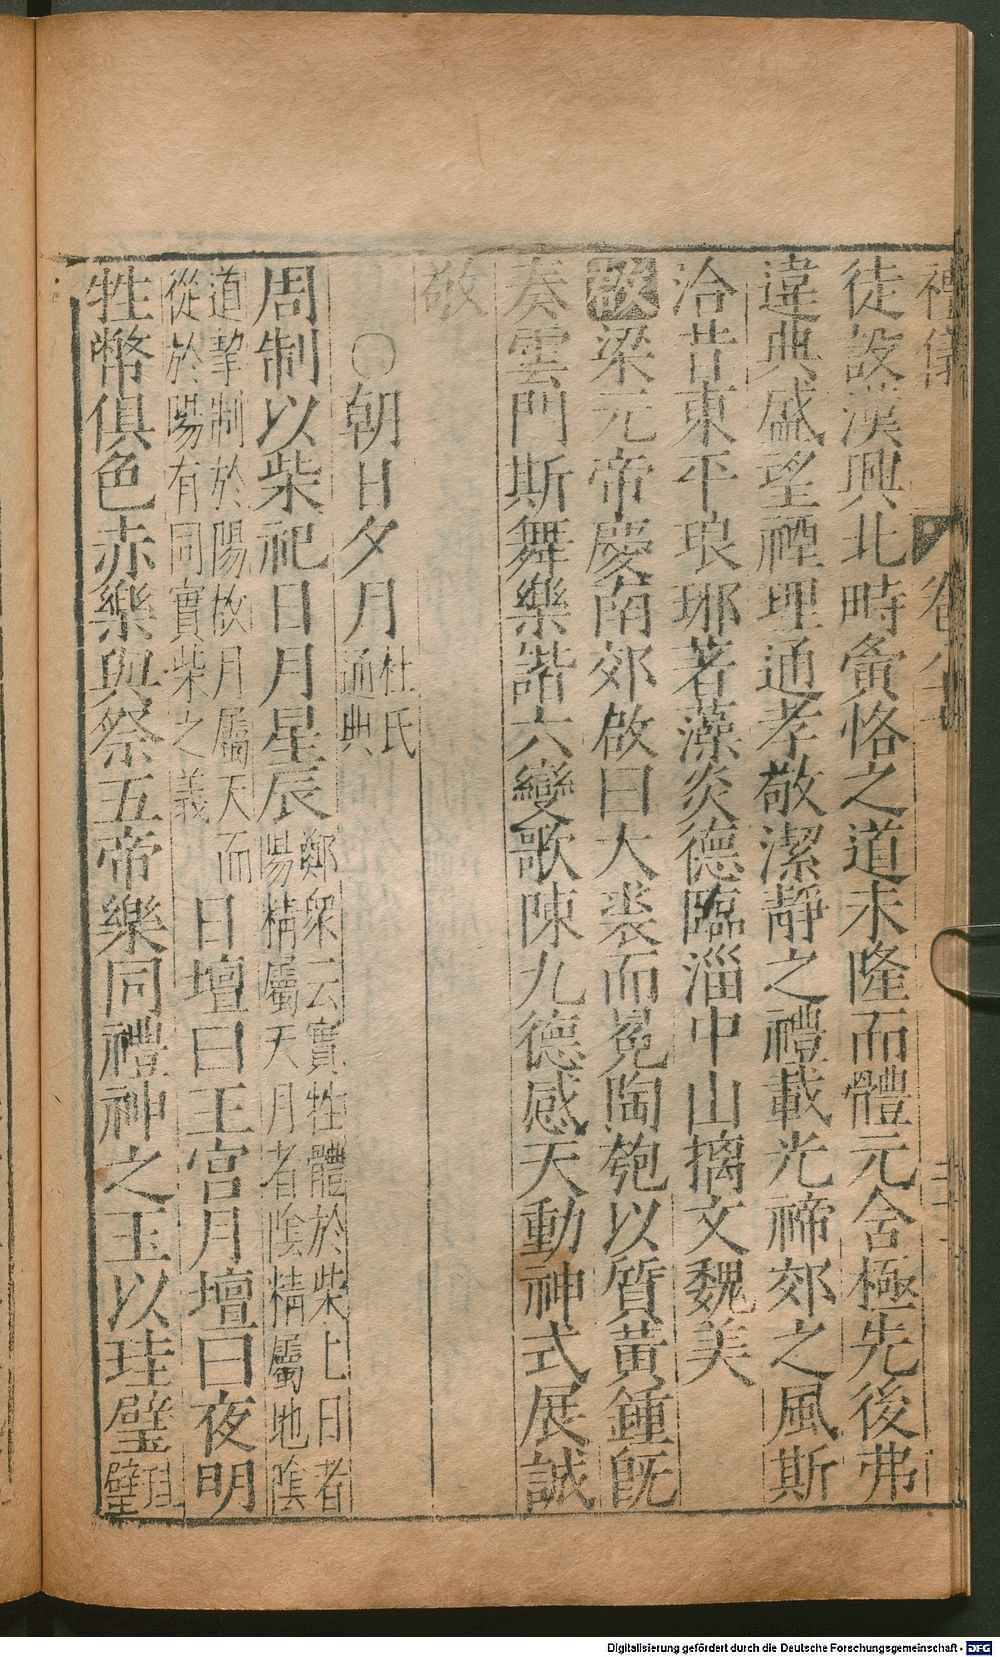 禮儀 卷八十
徒設漢興北畤夤恪之道未隆而體元合極先後弗
違典盛望禋理通孝敬潔靜之禮載光禘郊之風斯
洽昔東平琅耶著藻炎德臨淄中山摛文魏美
啟梁元帝慶南郊啟曰大裘而冕陶匏以質黃鍾旣
奏雲門斯舞樂諧六變歌陳九德感天動神式展誠
敬
〇朝日夕月杜氏通典
周制以柴祀日月星辰鄭衆云實牲體於柴上日者陽精屬天月者陰精屬地陰
道摯制於陽故月屬天而從於陽有同實柴之義日壇曰王宮月壇曰夜明
牲幣俱色赤樂與祭五帝樂同禮神之玉以珪璧珪璧
Digitalisierung gefördert durch die Deutsche Forschungsgemeinschaft - DFG